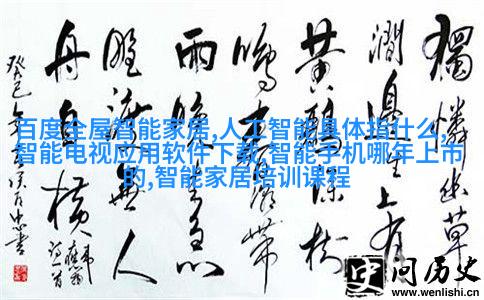 獨憐幽草
澗邊生上有
黄鸝深樹
鳴春潮帶
雨晚來急
野渡無人
舟自橫
百度全屋智能家居,人工智能具体指什么,
智能电视应用软件下载,智能手机哪年上市
的,智能家居培训课程
问历史
www.wenlishi.cn